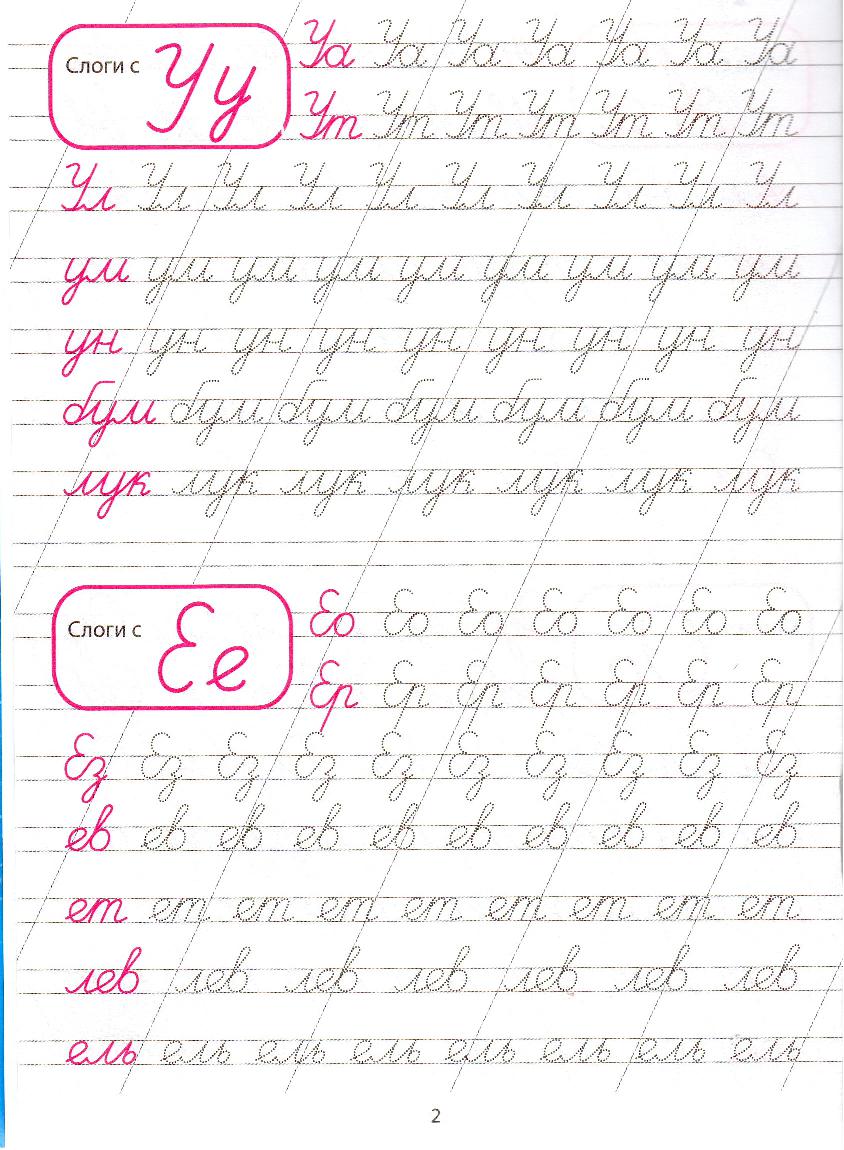 Слоги с Уу
Уа Уа Уа Уа Уа Уа Уа
Ут Ут Ут Ут Ут Ут Ут
Ул Ул Ул Ул Ул Ул Ул Ул Ул Ул
ум ум ум ум ум ум ум ум ум
ун ун ун ун ун ун ун ун ун
бум бум бум бум бум бум бум
лук лук лук лук лук лук лук
Слоги с Ее
Ео Ео Ео Ео Ео Ео Ео
Ер Ер Ер Ер Ер Ер Ер
Ез Ез Ез Ез Ез Ез Ез Ез Ез Ез
ев ев ев ев ев ев ев ев ев ев
ет ет ет ет ет ет ет ет ет
лев лев лев лев лев лев лев
ель ель ель ель ель ель ель ель
2